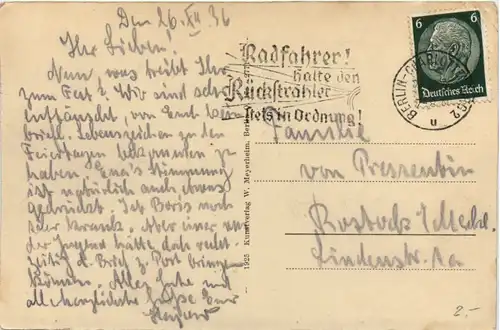 Den 26. XII 36
Ihr Lieben!
Nun, was treibt Ihr
zum Fest? Wir sind sehr
enttäuscht, von Euch kein
briefl. Lebenszeichen zu den
Feiertagen bekommen zu
haben. Stimmung
ist natürlich auch etwas
gedrückt. Ich Boris noch
sehr krank. Aber einer von
der Jungens hätte doch recht-
zeitig d. Brief z. Post bringen
können. Alles Gute und
allherzlichste Grüße Eure
Radfahrer!
Halte den
Rückstrahler
stets in Ordnung!
6 6
Deutsches Reich
BERLIN-CHARLOTTENBG 2
u
Familie
von Pressentin
Rostock i/Meckl.
Lindenstr. 1a
1925 Kunstverlag W. Meyerheim, Berlin
2.-